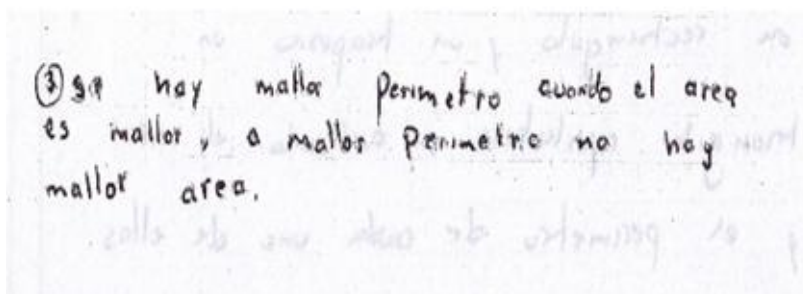 ③ si hay mallor Perimetro cuando el area
es mallor, a mallor Perimetro no hay
mallor area.